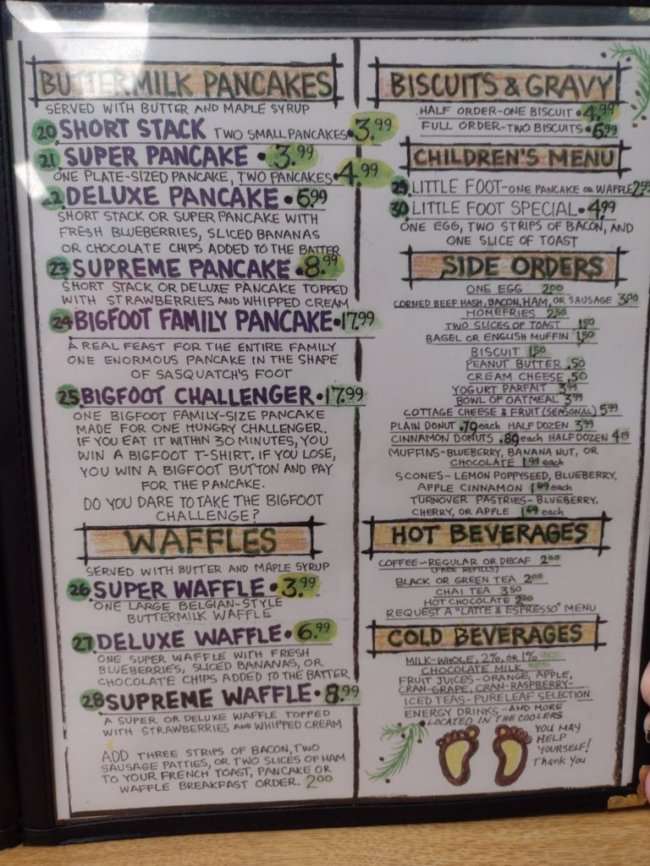 BUTTERMILK PANCAKES
SERVED WITH BUTTER AND MAPLE SYRUP
20 SHORT STACK TWO SMALL PANCAKES • 3.99
21 SUPER PANCAKE • 3.99
ONE PLATE-SIZED PANCAKE, TWO PANCAKES • 4.99
22 DELUXE PANCAKE • 6.99
SHORT STACK OR SUPER PANCAKE WITH
FRESH BLUEBERRIES, SLICED BANANAS
OR CHOCOLATE CHIPS ADDED TO THE BATTER
23 SUPREME PANCAKE • 8.99
SHORT STACK OR DELUXE PANCAKE TOPPED
WITH STRAWBERRIES AND WHIPPED CREAM
24 BIGFOOT FAMILY PANCAKE • 17.99
A REAL FEAST FOR THE ENTIRE FAMILY
ONE ENORMOUS PANCAKE IN THE SHAPE
OF SASQUATCH'S FOOT
25 BIGFOOT CHALLENGER • 17.99
ONE BIGFOOT FAMILY-SIZE PANCAKE
MADE FOR ONE HUNGRY CHALLENGER.
IF YOU EAT IT WITHIN 30 MINUTES, YOU
WIN A BIGFOOT T-SHIRT. IF YOU LOSE,
YOU WIN A BIGFOOT BUTTON AND PAY
FOR THE PANCAKE.
DO YOU DARE TO TAKE THE BIGFOOT
CHALLENGE?
WAFFLES
SERVED WITH BUTTER AND MAPLE SYRUP
26 SUPER WAFFLE • 3.99
ONE LARGE BELGIAN-STYLE
BUTTERMILK WAFFLE
27 DELUXE WAFFLE • 6.99
ONE SUPER WAFFLE WITH FRESH
BLUEBERRIES, SLICED BANANAS, OR
CHOCOLATE CHIPS ADDED TO THE BATTER
28 SUPREME WAFFLE • 8.99
A SUPER OR DELUXE WAFFLE TOPPED
WITH STRAWBERRIES AND WHIPPED CREAM
ADD THREE STRIPS OF BACON, TWO
SAUSAGE PATTIES, OR TWO SLICES OF HAM
TO YOUR FRENCH TOAST, PANCAKE OR
WAFFLE BREAKFAST ORDER. 2.00
BISCUITS & GRAVY
HALF ORDER-ONE BISCUIT • 4.99
FULL ORDER-TWO BISCUITS • 6.99
CHILDREN'S MENU
29 LITTLE FOOT-ONE PANCAKE OR WAFFLE 2.99
30 LITTLE FOOT SPECIAL • 4.99
ONE EGG, TWO STRIPS OF BACON, AND
ONE SLICE OF TOAST
SIDE ORDERS
ONE EGG 2.00
CORNED BEEF HASH, BACON, HAM, OR SAUSAGE 3.00
HOMEFRIES 2.50
TWO SLICES OF TOAST 1.50
BAGEL OR ENGLISH MUFFIN 1.50
BISCUIT 1.50
PEANUT BUTTER .50
CREAM CHEESE .50
YOGURT PARFAIT 3.99
BOWL OF OATMEAL 3.99
COTTAGE CHEESE & FRUIT (SEASONAL) 5.99
PLAIN DONUT .79 each HALF DOZEN 3.99
CINNAMON DONUTS .89 each HALF DOZEN 4.19
MUFFINS-BLUEBERRY, BANANA NUT, OR
CHOCOLATE 1.99 each
SCONES-LEMON POPPYSEED, BLUEBERRY,
APPLE CINNAMON 1.69 each
TURNOVER PASTRIES-BLUEBERRY,
CHERRY, OR APPLE 1.69 each
HOT BEVERAGES
COFFEE-REGULAR OR DECAF 2.00
(FREE REFILLS)
BLACK OR GREEN TEA 2.00
CHAI TEA 3.50
HOT CHOCOLATE 2.00
REQUEST A "LATTE & ESPRESSO" MENU
COLD BEVERAGES
MILK-WHOLE, 2%, OR 1%
CHOCOLATE MILK
FRUIT JUICES-ORANGE, APPLE,
CRAN-GRAPE, CRAN-RASPBERRY-
ICED TEAS-PURE LEAF SELECTION
ENERGY DRINKS-AND MORE
LOCATED IN THE COOLERS
YOU MAY
HELP
YOURSELF!
Thank you